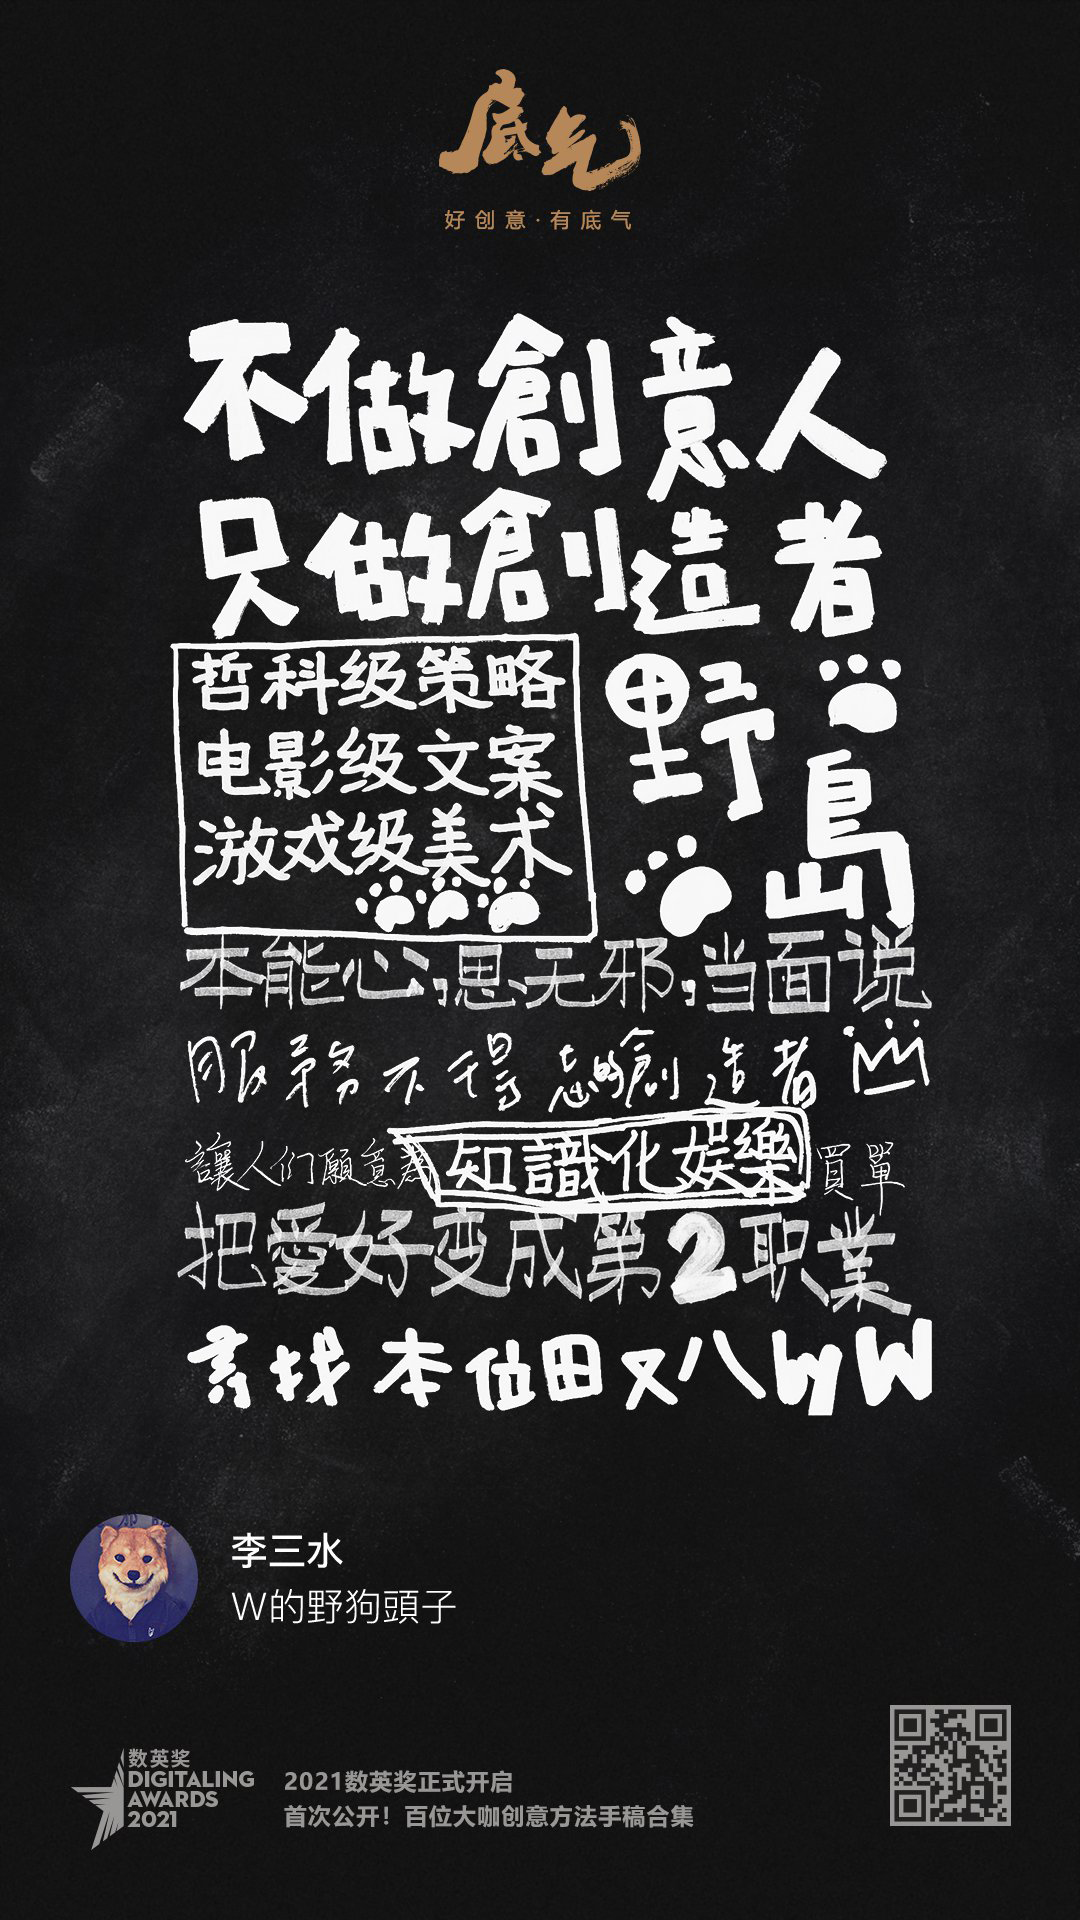 底气
好创意·有底气
不做創意人
只做創造者
哲科级策略
电影级文案
游戏级美术
野島
本能心;思无邪;当面说
服务不得志的創造者
讓人们願意為知識化娛樂買單
把愛好变成第2职業
寻找本位田又八 by W
李三水
W的野狗頭子
数英奖
DIGITALING
AWARDS
2021
2021数英奖正式开启
首次公开！百位大咖创意方法手稿合集